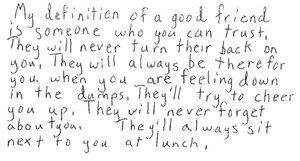 My definition of a good friend
is someone who you can trust.
They will never turn their back on
you. They will always be there for
you when you are feeling down
in the dumps. They'll try to cheer
you up. They will never forget
about you. They'll always sit
next to you at lunch.